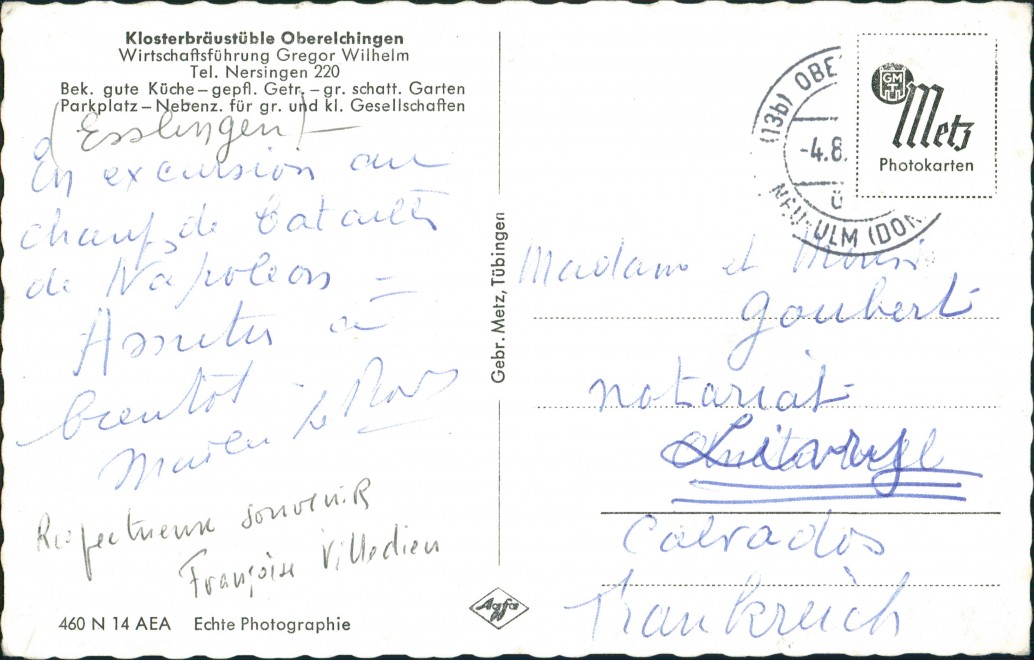 Klosterbräustüble Oberelchingen
Wirtschaftsführung Gregor Wilhelm
Tel. Nersingen 220
Bek. gute Küche – gepfl. Getr. – gr. schatt. Garten
Parkplatz – Nebenz. für gr. und kl. Gesellschaften
(Esslingen) –
En excursion au
champ de bataille
de Napoléon –
à
bientôt
Respectueux souvenir
Françoise Villedieu
460 N 14 AEA Echte Photographie
Gebr. Metz, Tübingen
Agfa
(13b) OBE
-4.8.
ü
NEU-ULM (DON
GM
TÜ
Metz
Photokarten
Madame et
Goubert
notariat
Calvados
Frankreich